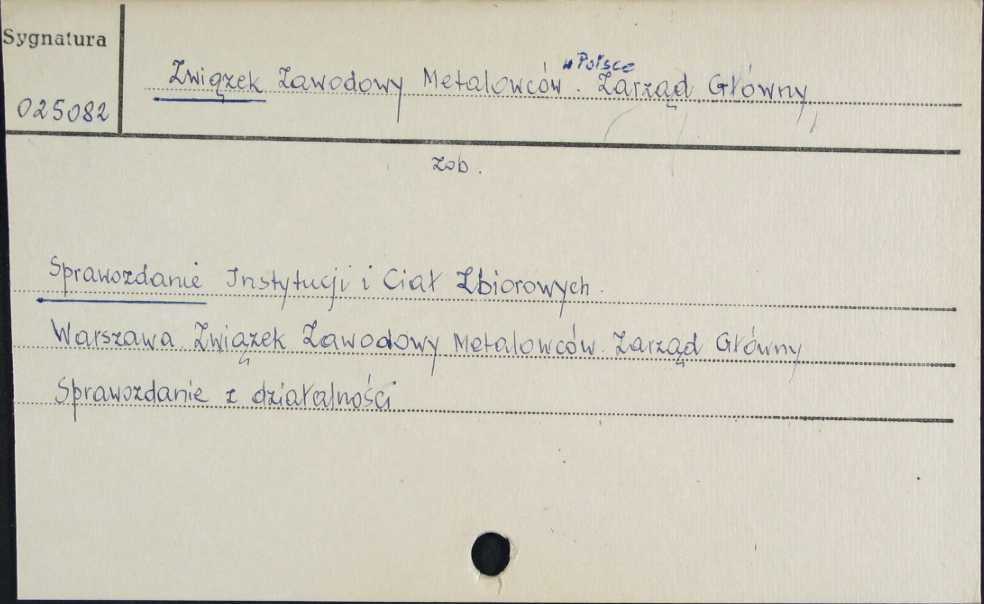 Sygnatura
025082
Związek Zawodowy Metalowców w Polsce. Zarząd Główny
zob.
Sprawozdanie Instytucji i Ciał Zbiorowych.
Warszawa. Związek Zawodowy Metalowców. Zarząd Główny
Sprawozdanie z działalności